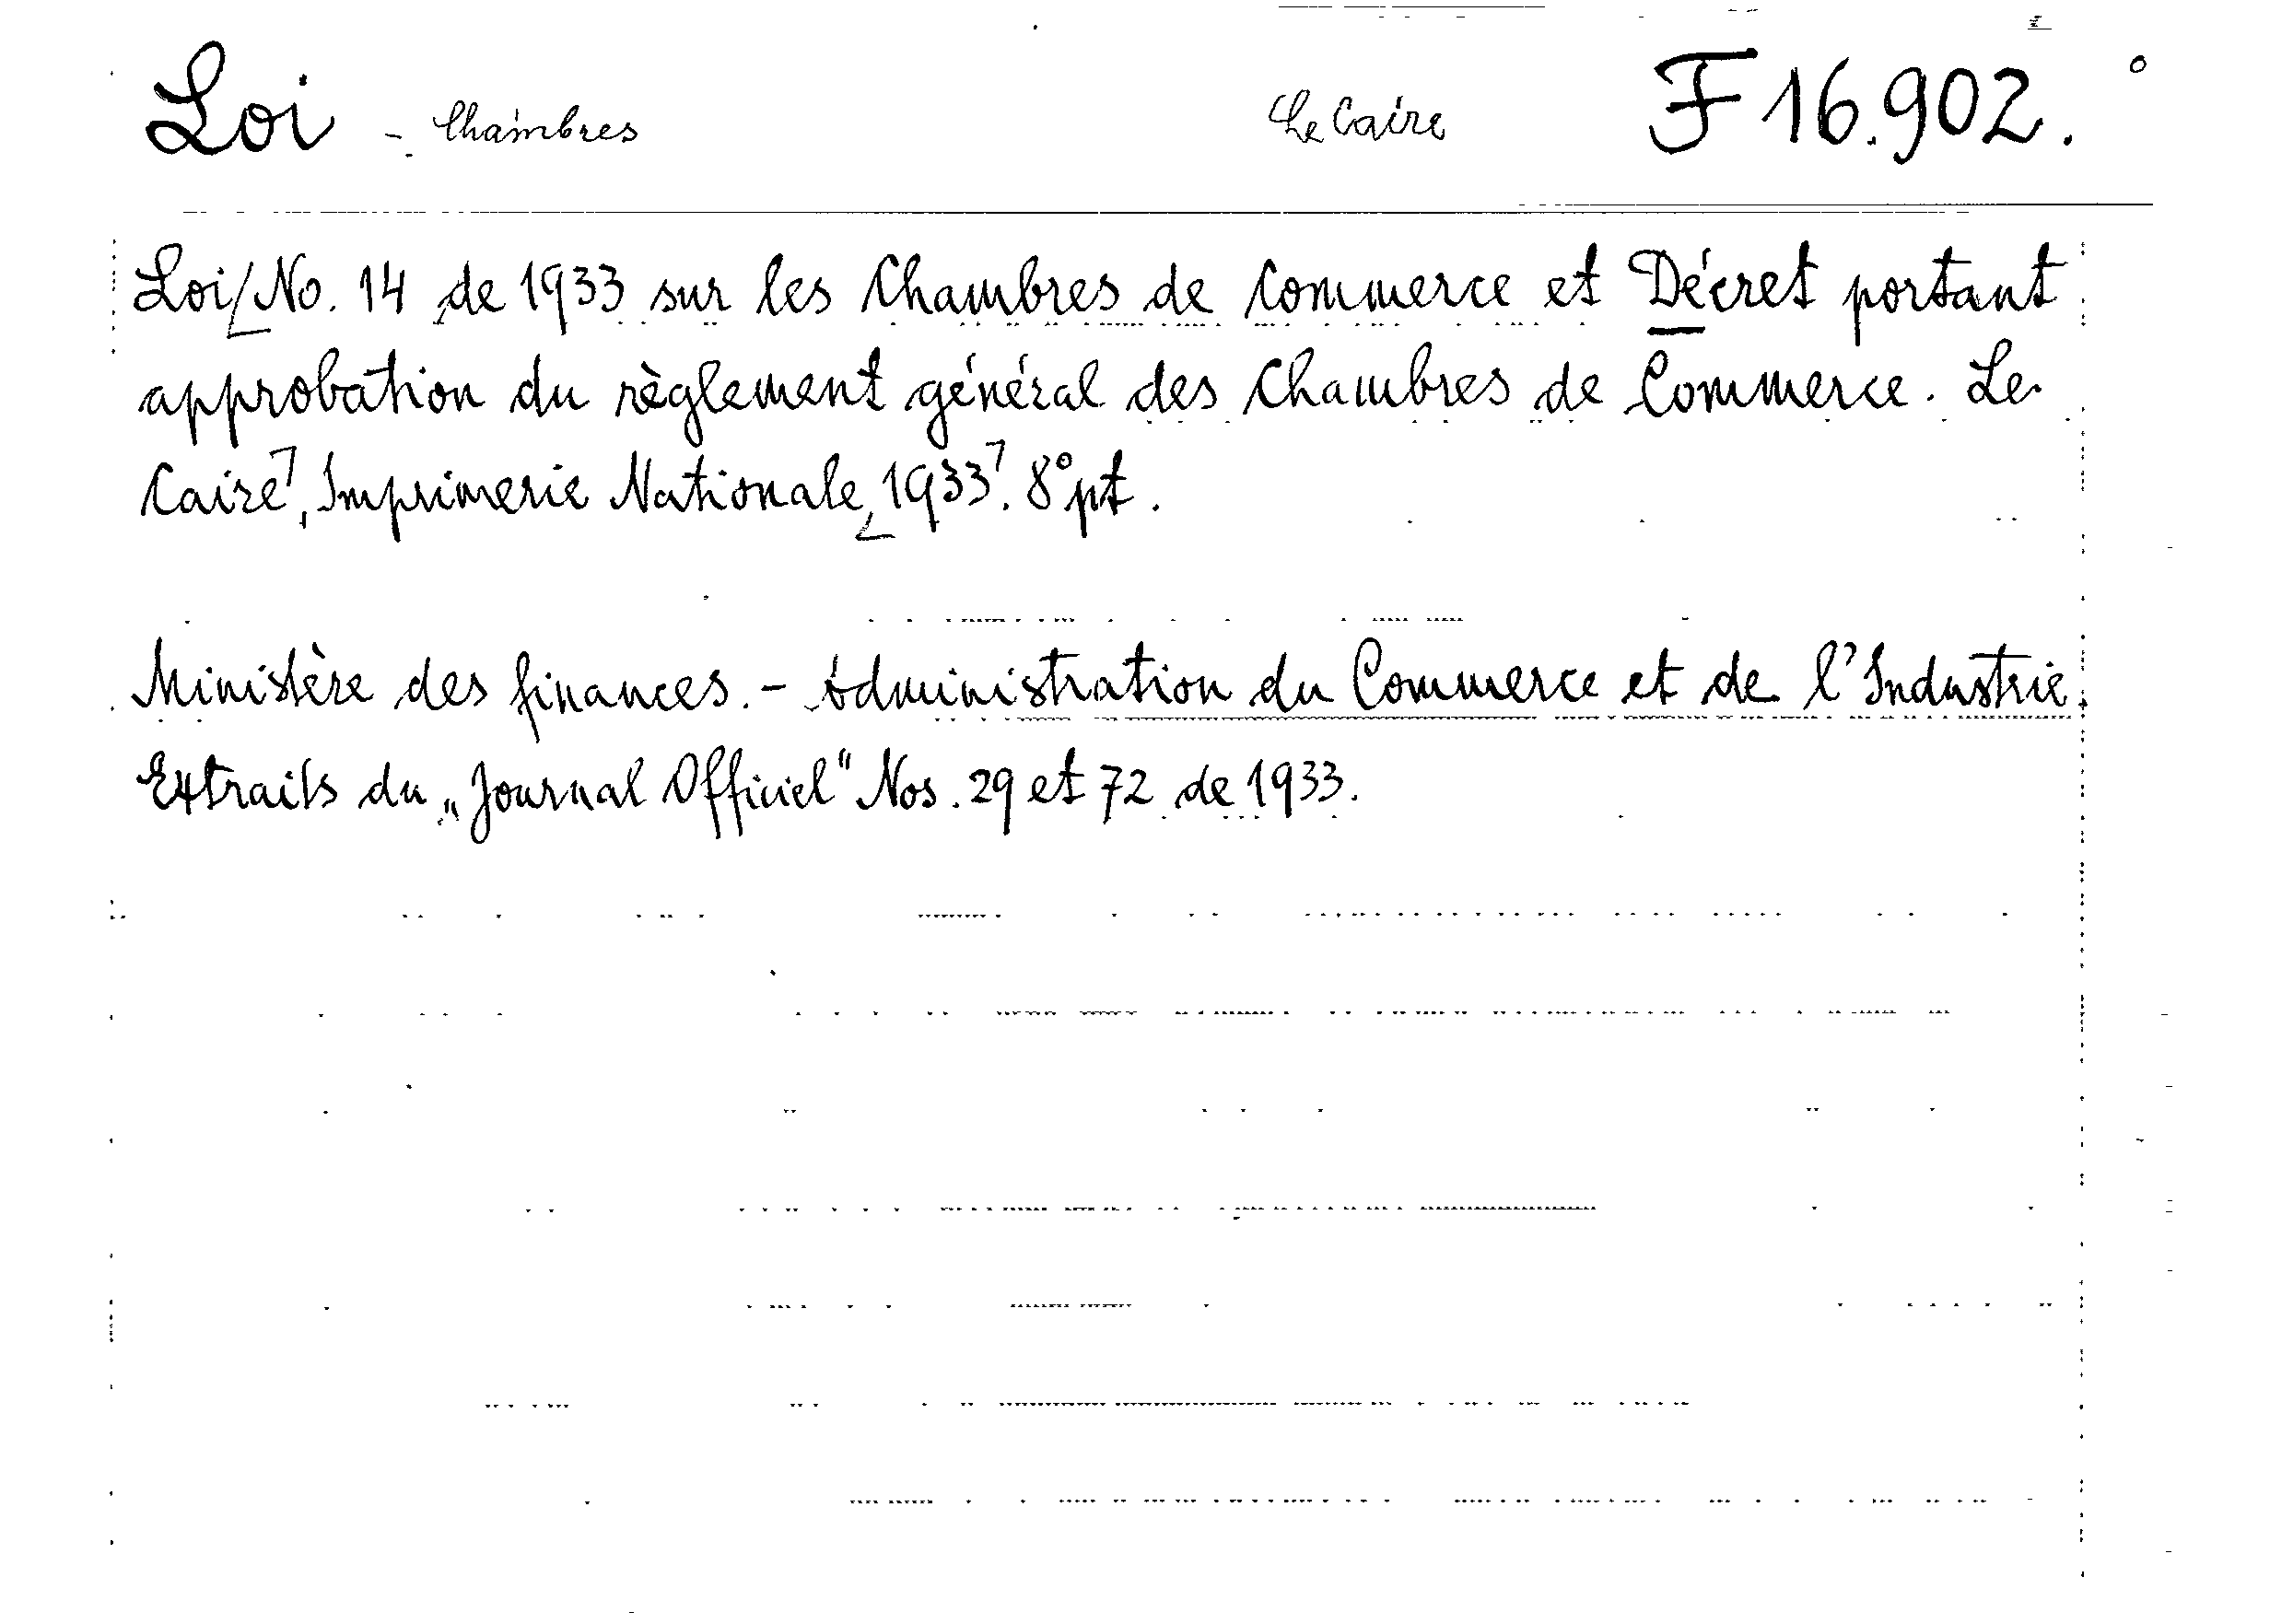 Loi - Chambres Le Caire F 16.902.
Loi No. 14 de 1933 sur les Chambres de Commerce et Décret portant
approbation du règlement général des Chambres de Commerce. Le
Caire, Imprimerie Nationale, 1933. 8° pt.
Ministère des finances. - Administration du Commerce et de l'Industrie.
Extraits du „Journal Officiel" Nos. 29 et 72 de 1933.